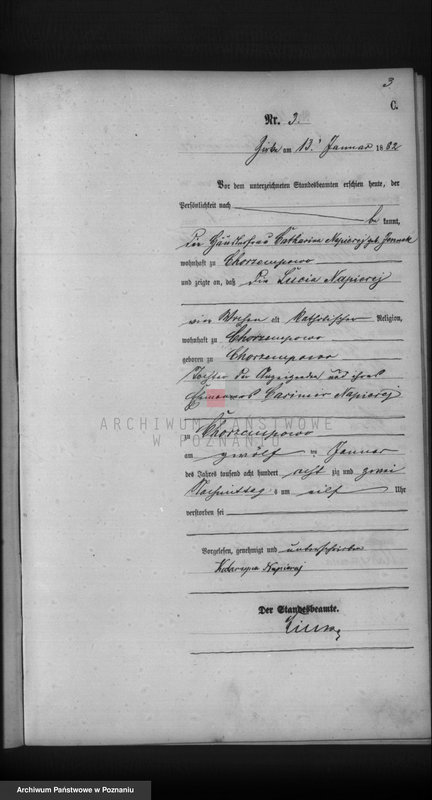 3
C.
Nr. 3.
Zirke am 13. Januar 1882
Vor dem unterzeichneten Standesbeamten erschien heute, der
Persönlichkeit nach
be kannt,
die Häuslerfrau Catharina Napieraj geb.
wohnhaft zu Chorzempowo
und zeigte an, daß die Lucia Napieraj
vier Wochen alt katholischer Religion,
wohnhaft zu Chorzempowo
geboren zu Chorzempowo
Tochter der Anzeigenden und ihres
Ehemannes Casimir Napieraj
zu Chorzempowo
am zwölften Januar
des Jahres tausend acht hundert acht zig und zwei
Nachmittags um eilf Uhr
verstorben sei
Vorgelesen, genehmigt und unterschrieben
Katarzyna Napieraj
Der Standesbeamte.
ARCHIWUM PAŃSTWOWE
W POZNANIU
Archiwum Państwowe w Poznaniu